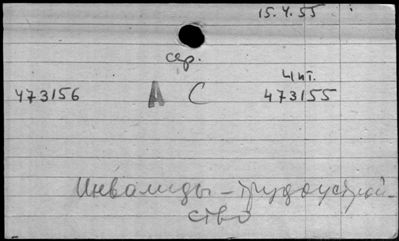 15.4.55
сер.
чит.
473156 А С 473155
Инвалиды - трудоустрой-
ство